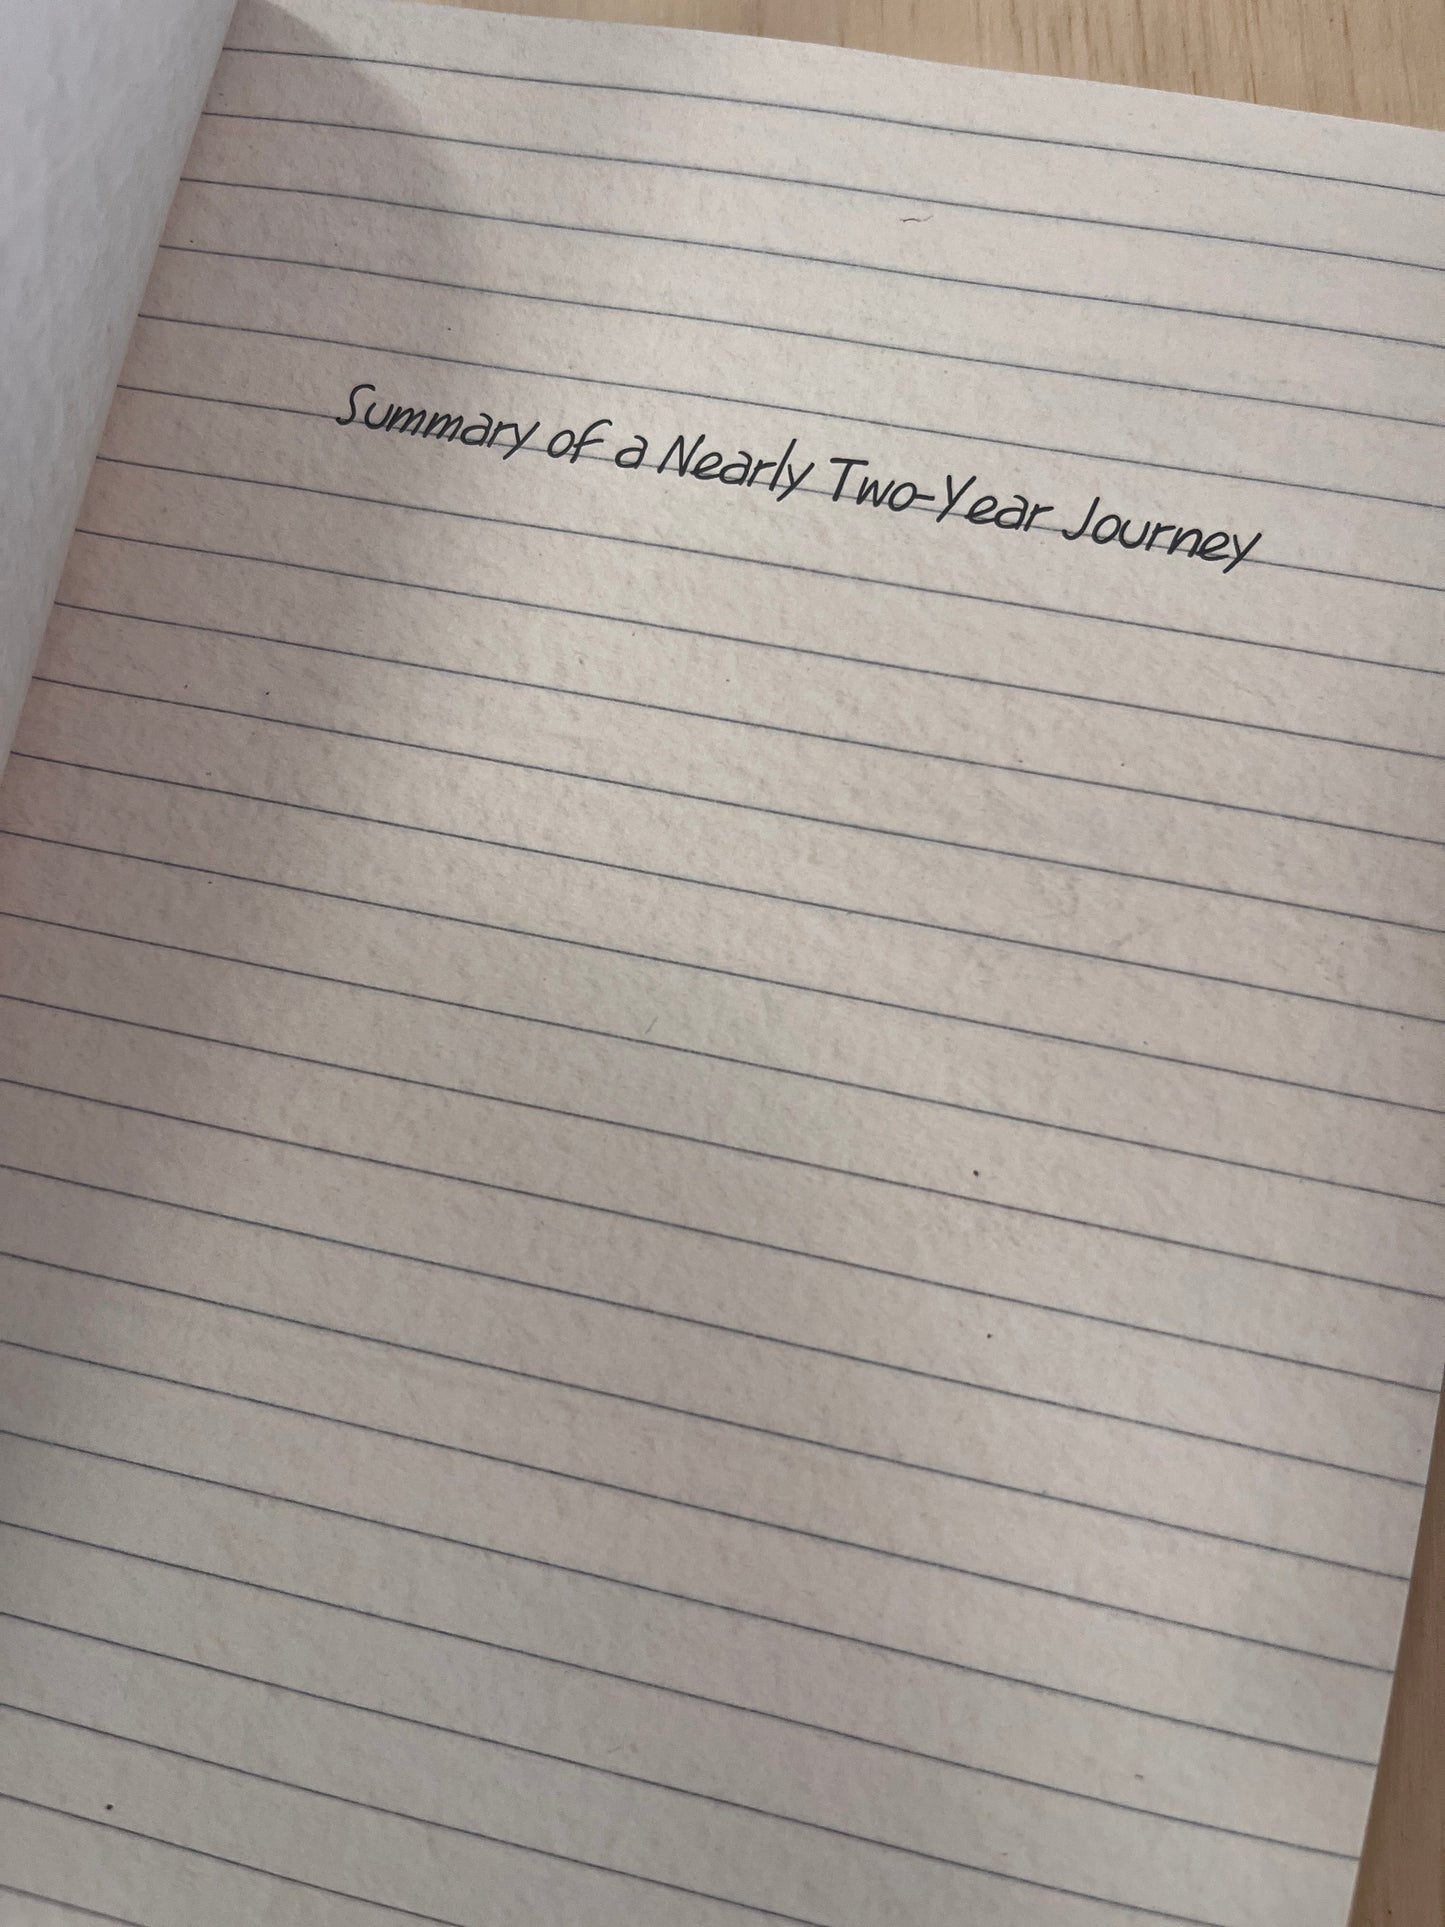 Summary of a Nearly Two-Year Journey